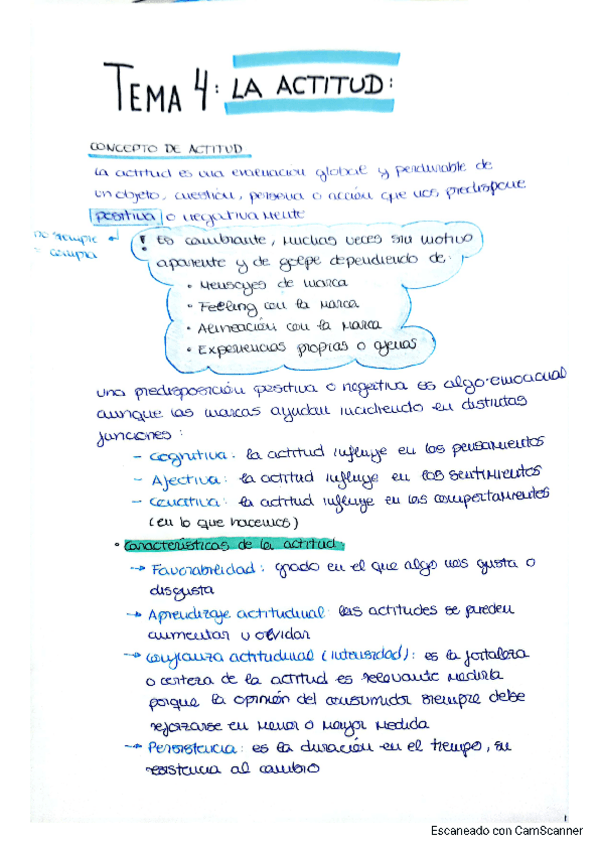 TEMA 4: LA ACTITUD:
CONCEPTO DE ACTITUD
La actitud es una evaluación global y perdurable de
un objeto, cuestión, persona o acción que nos predispone
positiva o negativamente
no siempre
compra
! Es cambiante, muchas veces sin motivo
aparente y de golpe dependiendo de:
• Mensajes de marca
• Feeling con la marca
• Alineación con la marca
• Experiencias propias o ajenas
una predisposición positiva o negativa es algo emocional
aunque las marcas ayudan incidiendo en distintas
funciones:
- Cognitiva: la actitud influye en los pensamientos
- Afectiva: la actitud influye en los sentimientos
- Conativa: la actitud influye en los comportamientos
(en lo que hacemos)
• Características de la actitud:
→ Favorabilidad: grado en el que algo nos gusta o
disgusta
→ Aprendizaje actitudinal: las actitudes se pueden
aumentar u olvidar
→ Confianza actitudinal (intensidad): es la fortaleza
o certeza de la actitud es relevante medirla
porque la opinión del consumidor siempre debe
reforzarse en menor o mayor medida
→ Persistencia: es la duración en el tiempo, su
resistencia al cambio
1
Escaneado con CamScanner